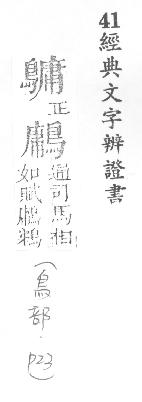 41經典文字辨證書
正
通司馬相
如賦
(鳥部.p23)